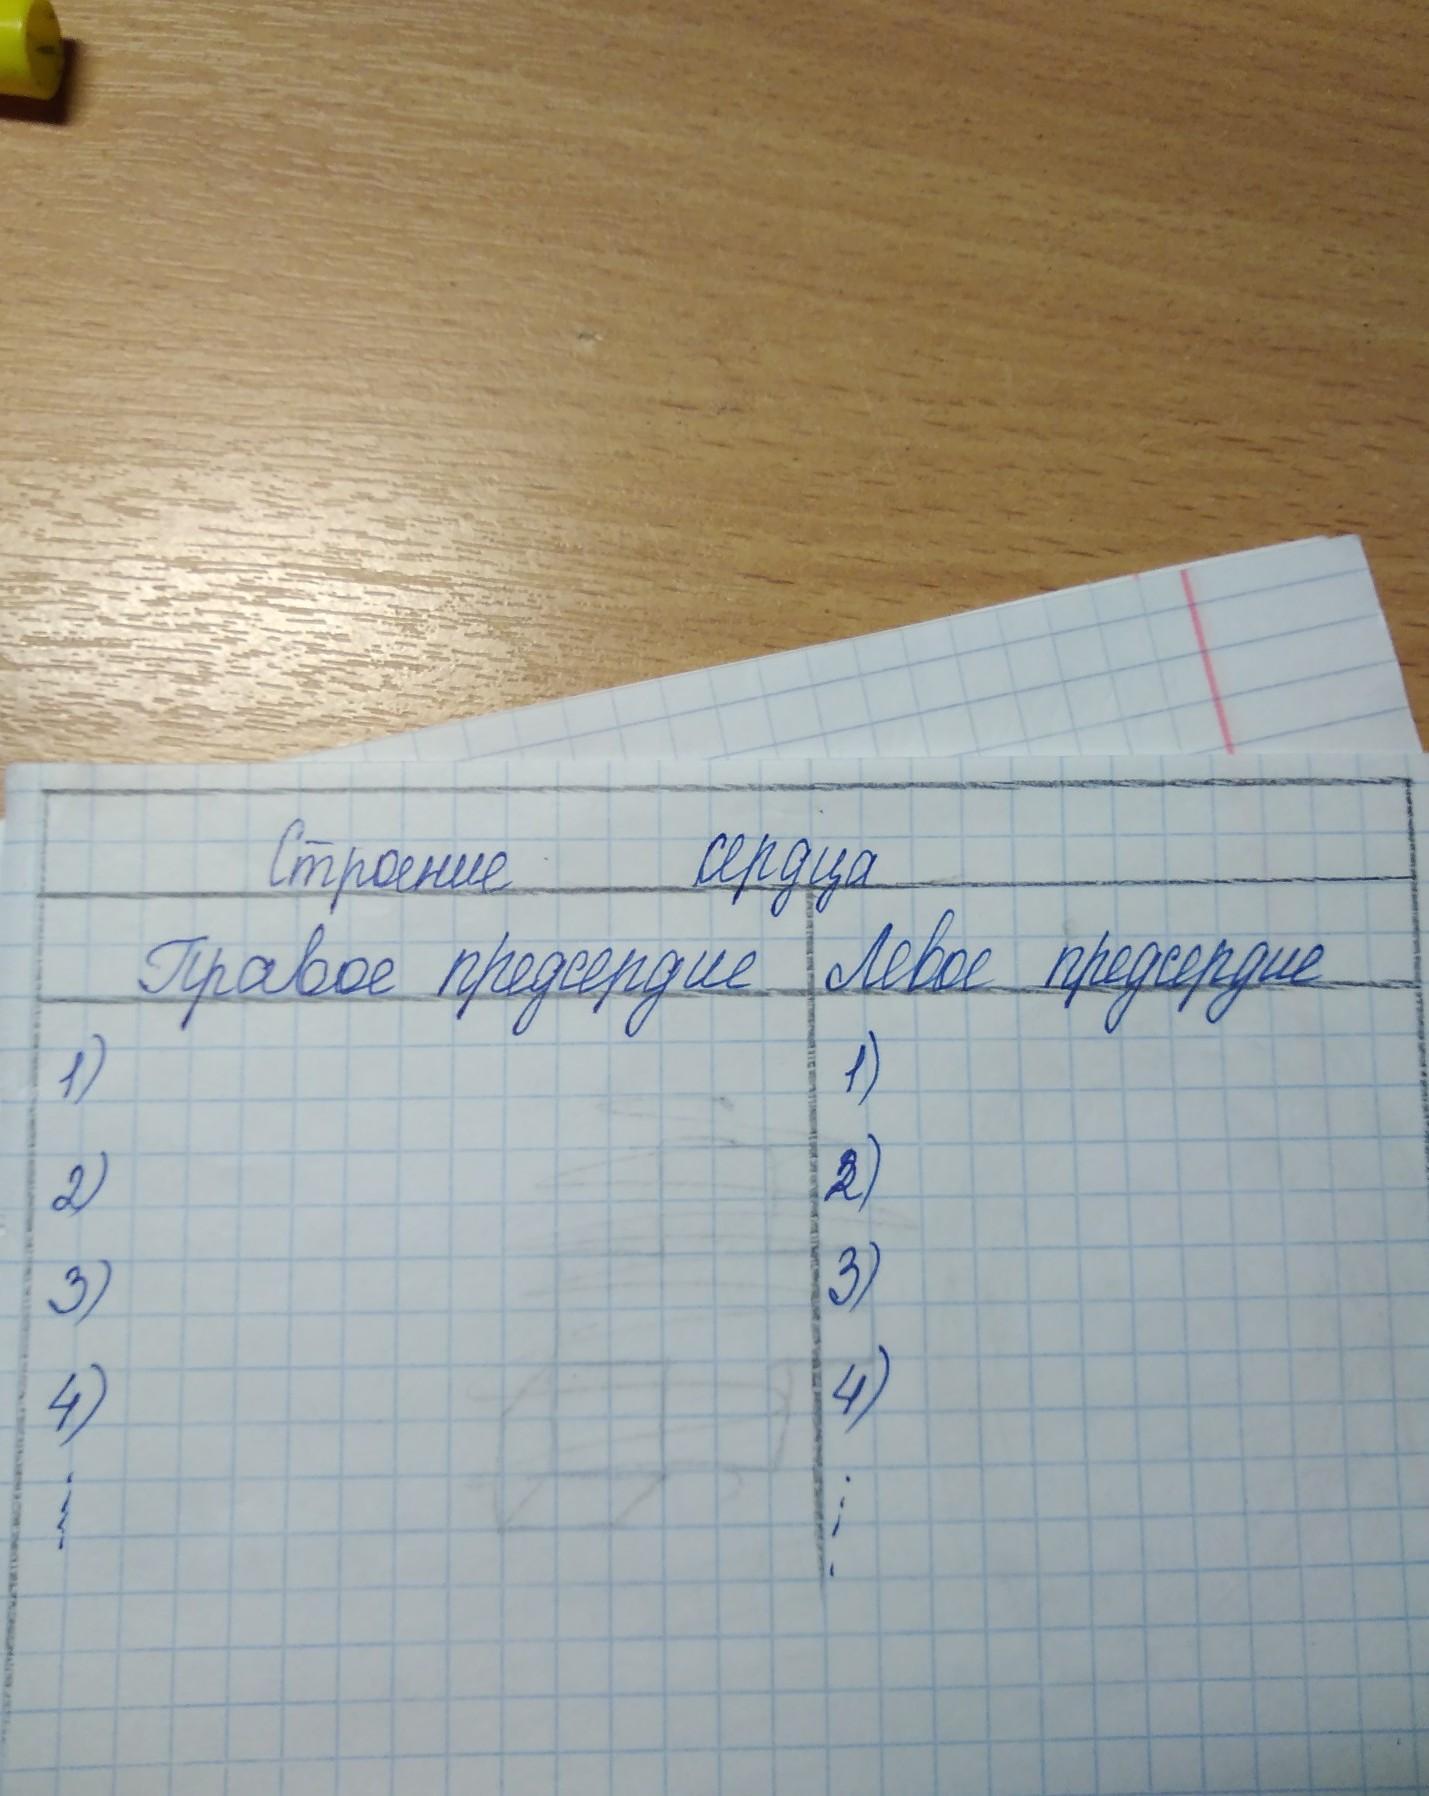 Строение сердца
Правое предсердие Левое предсердие
1) 1)
2) 2)
3) 3)
4) 4)